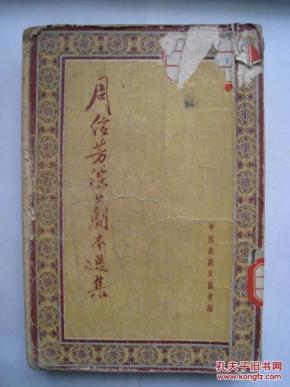 周信芳演出劇本選集
中国戲劇家協會編
3
孔夫子旧书网